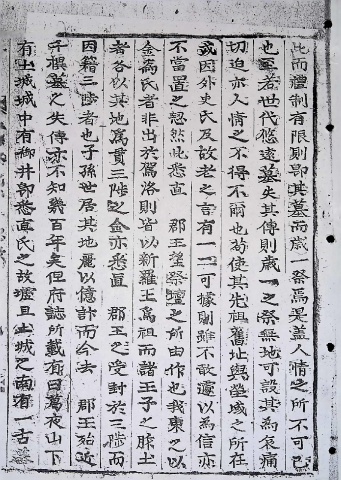 此而禮制有限則卽其墓而歲一祭焉是盖人情之所不可已
也至若世代悠遠墓失其傳則歲一之祭無地可設其爲哀痛
切迫亦人情之不得不爾也苟使其先祖舊址與塋域之所在
或因外史氏及故老之言有一二可據則雖不敢遽以爲信亦
不當置之忽然此悉直 郡王望祭壇之所由作也我東之以
金爲氏者非出於駕洛則皆以新羅王爲祖而諸王子之胙土
者各以其地爲貫三陟之金亦悉直 郡王之受封於三陟而
因籍三陟者也子孫世居其地麗以億計而今去 郡王殆近
千禩墓之失傳亦不知幾百年矣但府誌所載有曰葛夜山下
有土城城中有御井卽悉直氏之故墟且土城之南有一古墓